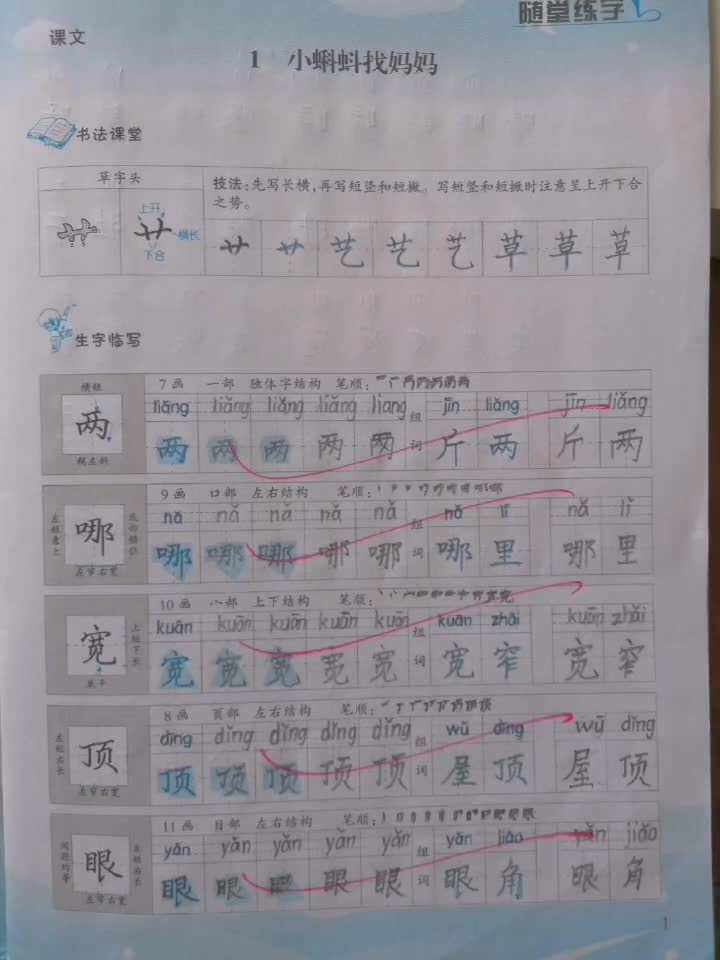 随堂练字
课文
1 小蝌蚪找妈妈
书法课堂
草字头 技法:先写长横,再写短竖和短撇。写短竖和短撇时注意呈上开下合之势。
上开 横长 下合 艹 艹 艺 艺 艺 草 草 草
生字临写
横短 两 稍左斜
7画 一部 独体字结构 笔顺:
liǎng liǎng liǎng liǎng liang 组 jīn liǎng jīn liǎng
两 两 两 两 两 词 斤 两 斤 两
哪 左窄右宽
9画 口部 左右结构 笔顺:
nǎ nǎ nǎ nǎ nǎ 组 nǎ lǐ nǎ lǐ
哪 哪 哪 哪 哪 词 哪 里 哪 里
上短下长 宽
10画 宀部 上下结构 笔顺:
kuān kuān kuān kuān kuān 组 kuān zhǎi kuān zhǎi
宽 宽 宽 宽 宽 词 宽 窄 宽 窄
左短右长 顶 左窄右宽
8画 页部 左右结构 笔顺:
dǐng dǐng dǐng dǐng dǐng 组 wū dǐng wū dǐng
顶 顶 顶 顶 顶 词 屋 顶 屋 顶
间距均等 左短右长 眼 左窄右宽
11画 目部 左右结构 笔顺:
yǎn yǎn yǎn yǎn yǎn 组 yǎn jiǎo yǎn jiǎo
眼 眼 眼 眼 眼 词 眼 角 眼 角
1